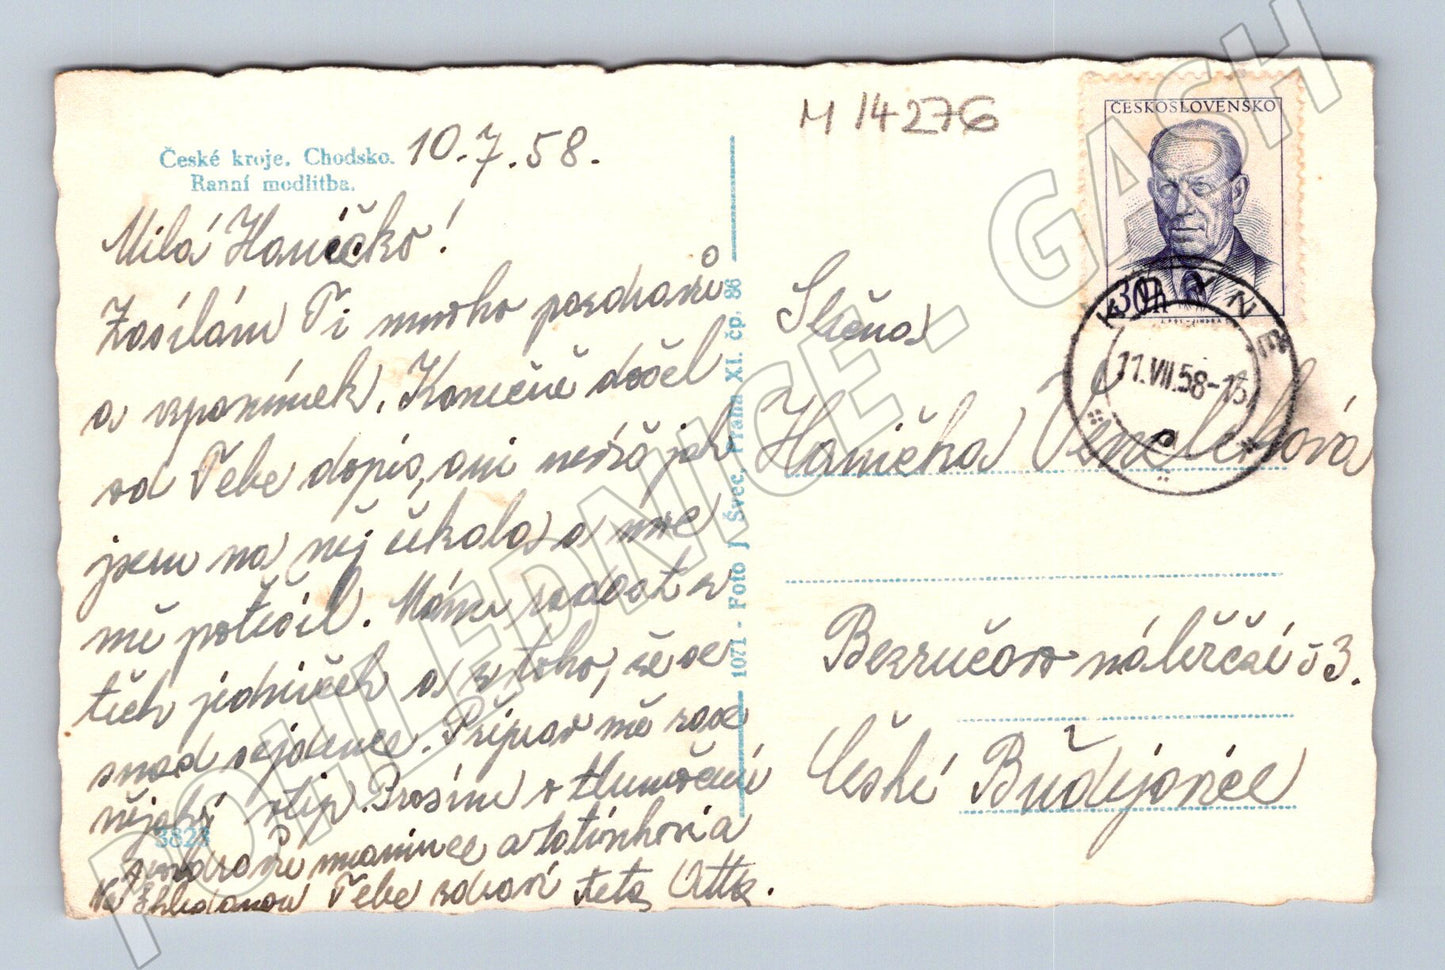 České kroje. Chodsko.
Ranní modlitba.
10.7.58.
Milá Haničko!
Zasílám Ti mnoho pozdravů
a vzpomínek. Konečně došel
od Tebe dopis, ani nevíš jak
jsem na něj čekala a moc
mě potěšil. Máme radost z
těch jedniček a z toho, že se
snad sejdeme. Připrav mě zase
nějaký vtip. Prosím o tlumočení
pozdravů mamince a tatínkovi a
Na Tebe zdraví teta
3823
1071 - Foto J Švec, Praha XI. čp. 86
M 14276
ČESKOSLOVENSKO
30h
KDYNĚ
11.VII.58-15
a
Slečna
Hanička
Bezručovo nábřeží č 3.
České Budějovice
POHLEDNICE - GASH